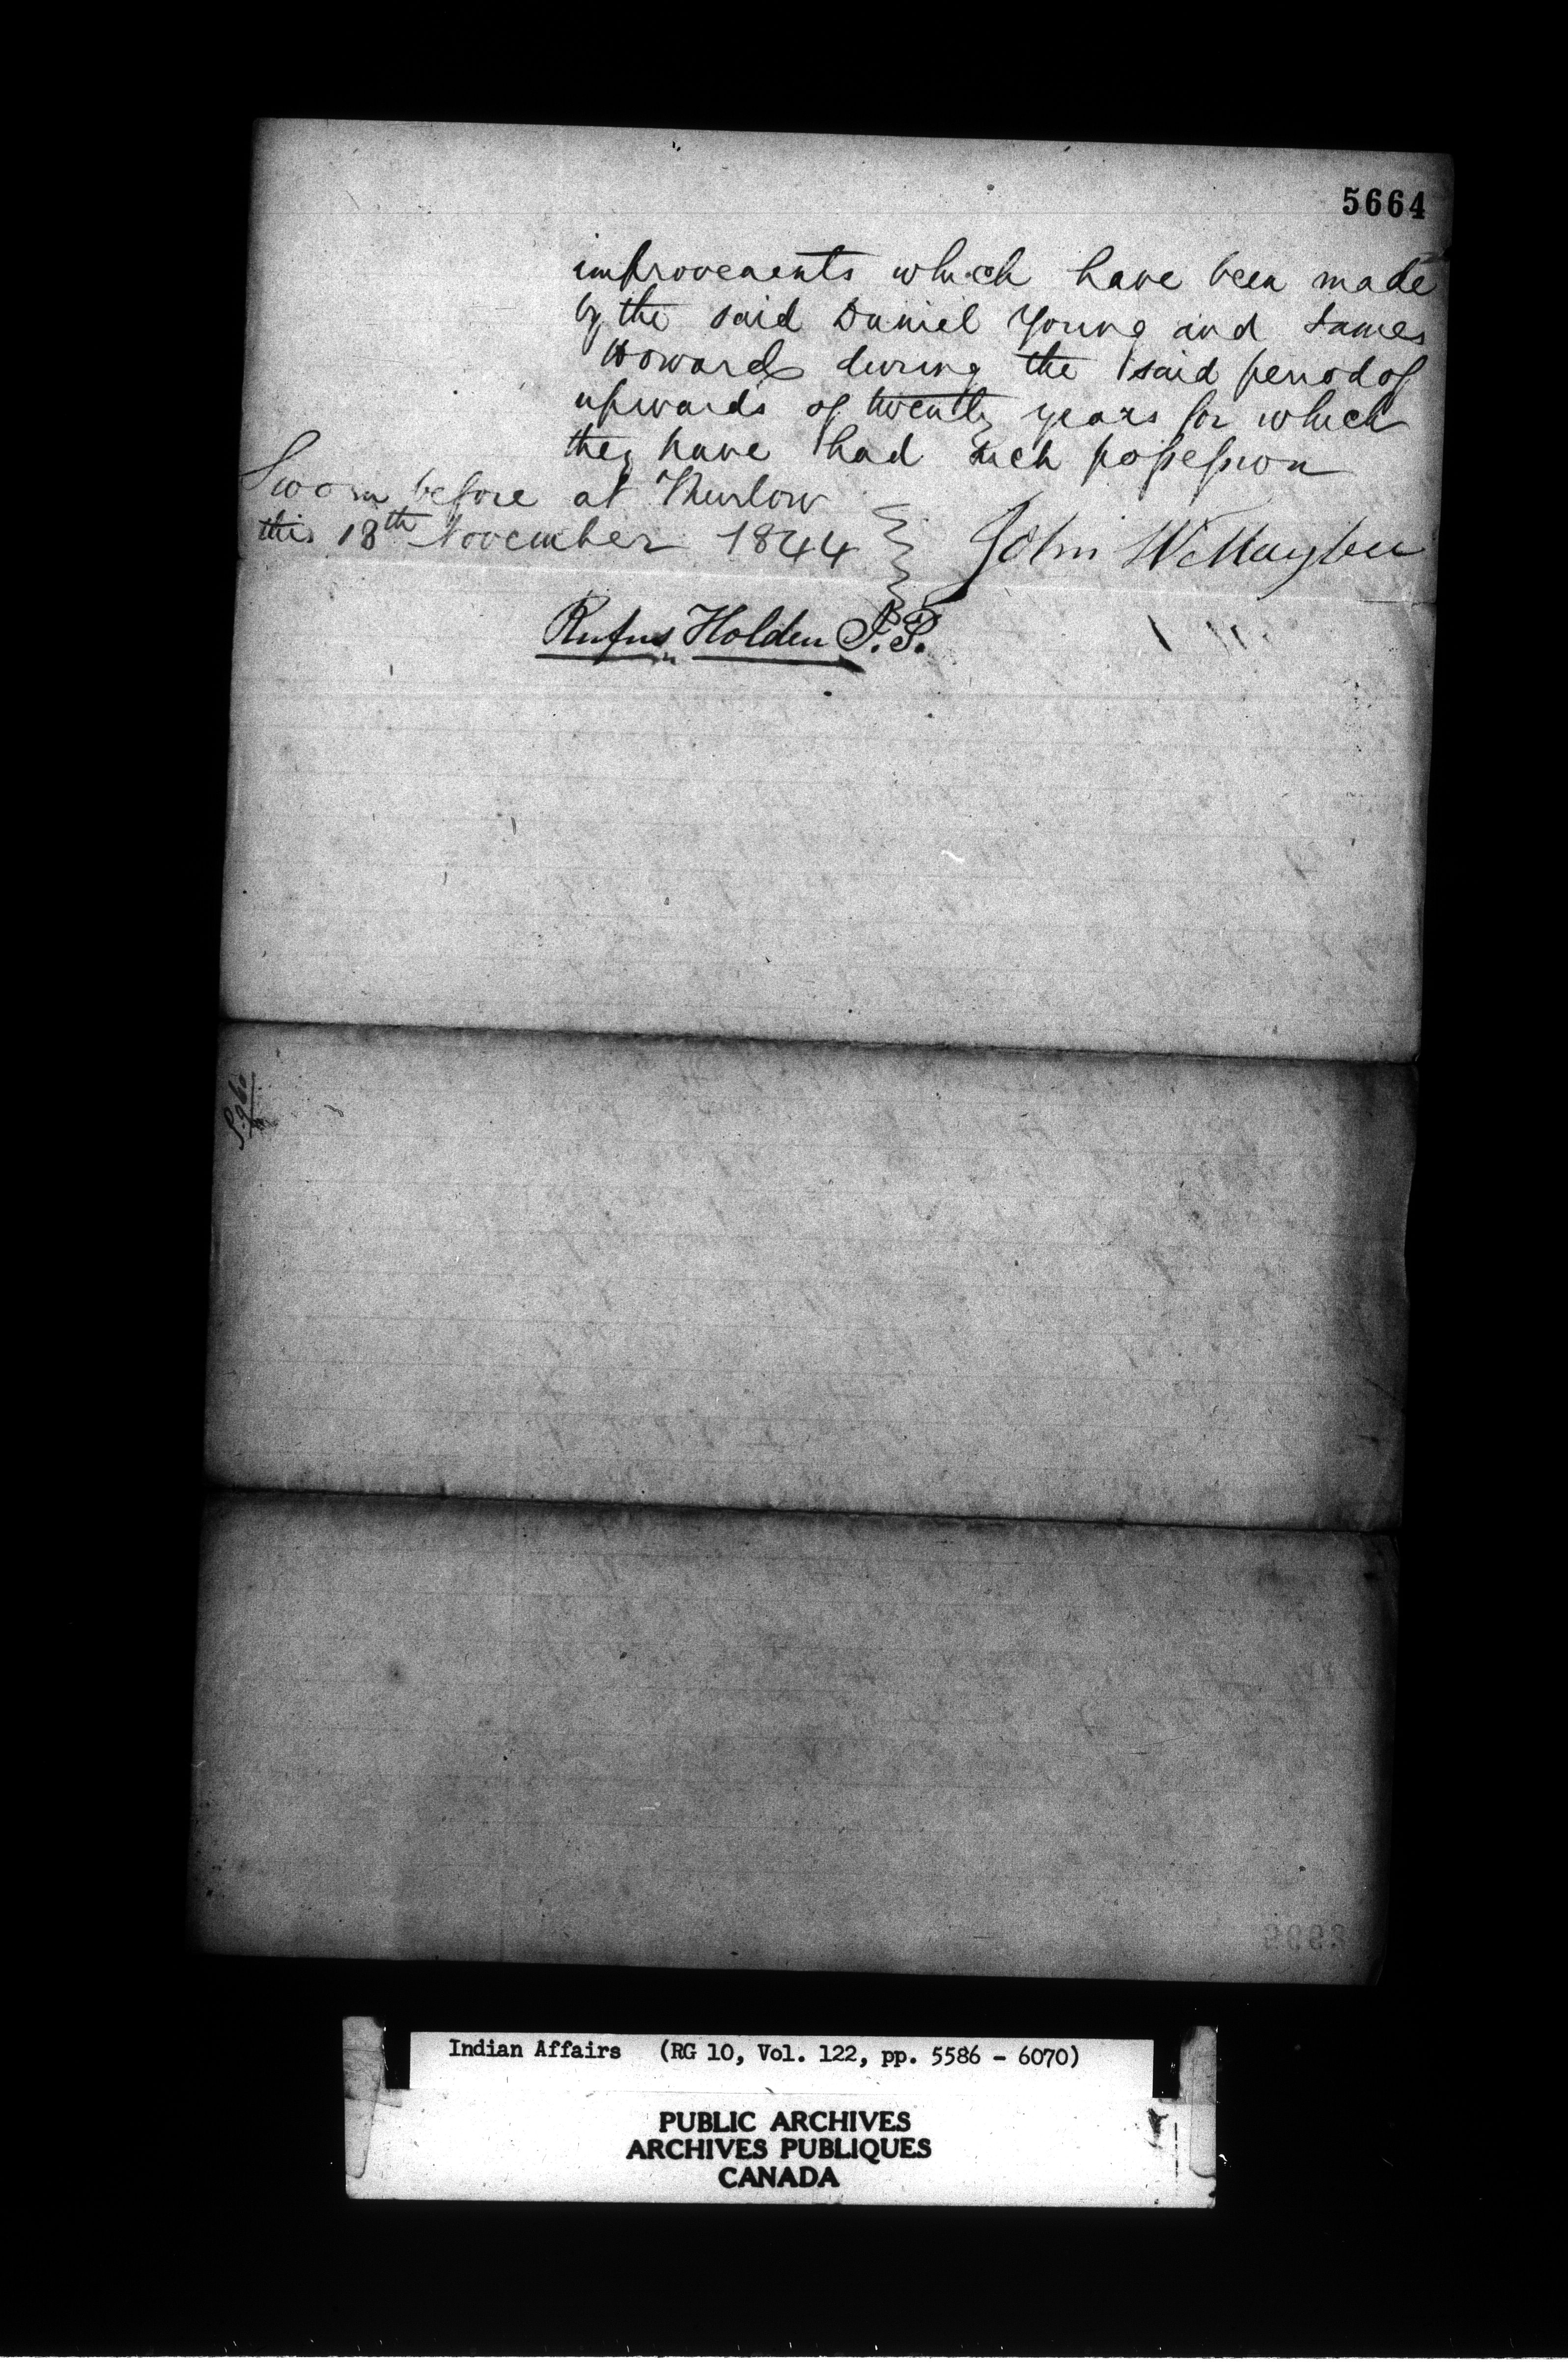 5664
improvements which have been made
by the said Daniel Young and James
Howard during the said period of
upwards of twenty years for which
they have had such possession
Sworn before at Thurlow
this 18th November 1844
John W Maybee
Rufus Holden J.P.
Indian Affairs (RG 10, Vol. 122, pp. 5586 - 6070)
PUBLIC ARCHIVES
ARCHIVES PUBLIQUES
CANADA